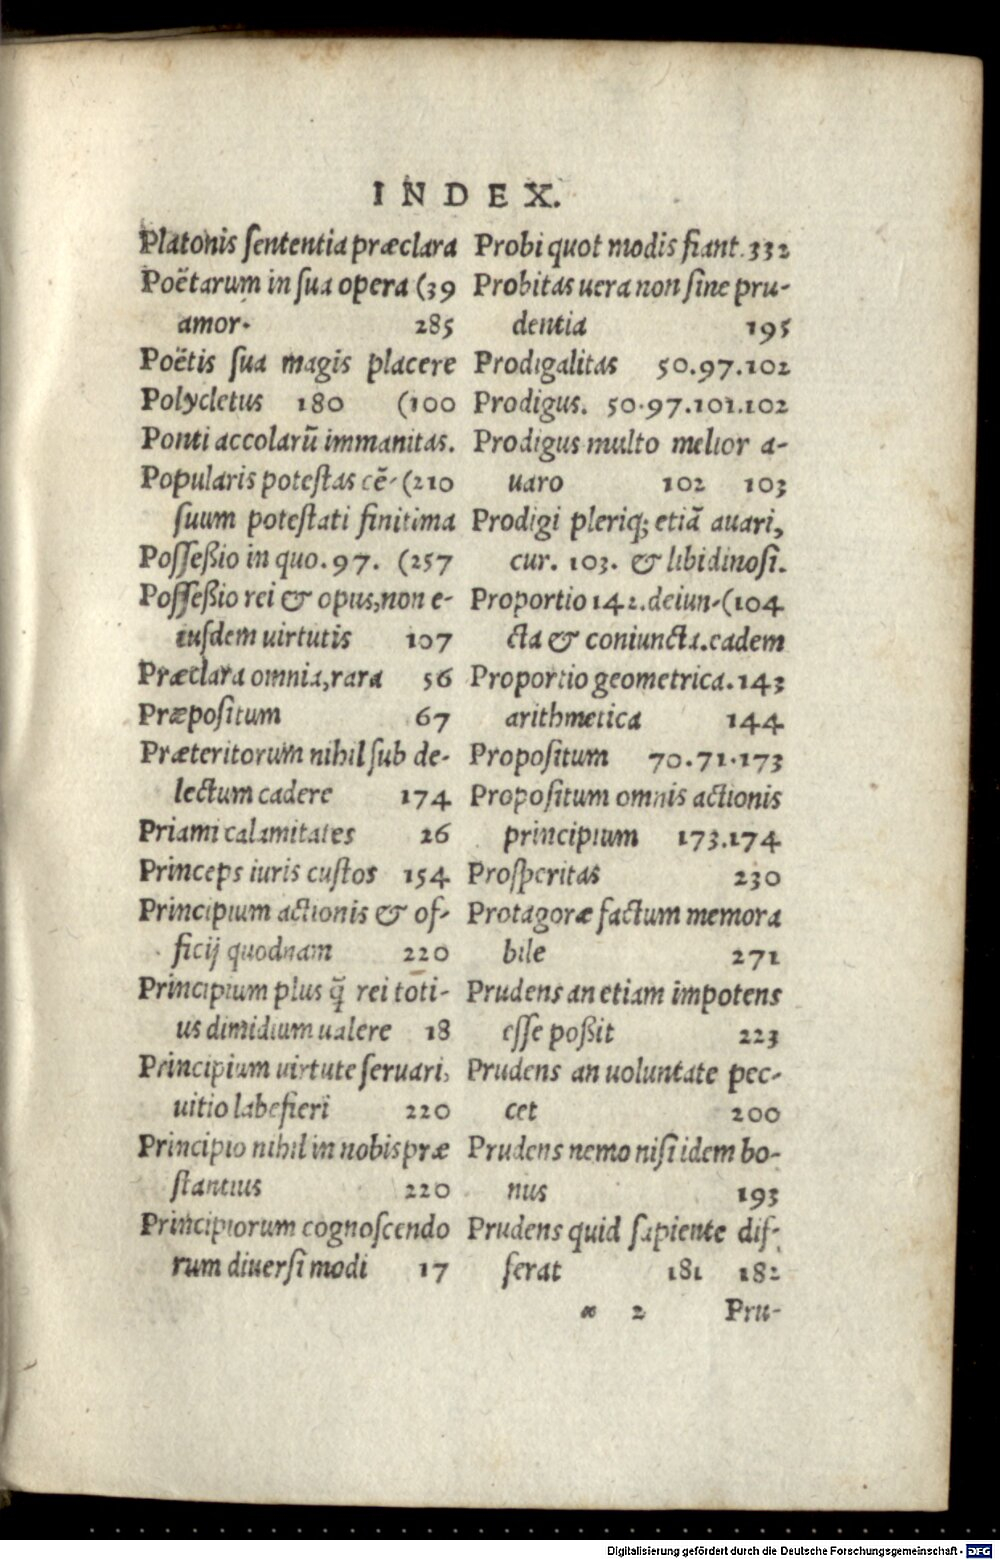 INDEX.
Platonis sententia præclara
Poëtarum in sua opera (39
amor. 285
Poëtis sua magis placere
Polycletus 180 (100
Ponti accolarū immanitas.
Popularis potestas cē- (210
suum potestati finitima
Posseßio in quo. 97. (257
Posseßio rei & opus, non e-
iusdem uirtutis 107
Præclara omnia, rara 56
Præpositum 67
Præteritorum nihil sub de-
lectum cadere 174
Priami calamitates 26
Princeps iuris custos 154
Principium actionis & of-
ficij quodnam 220
Principium plus q̃ rei toti-
us dimidium ualere 18
Principium uirtute seruari,
uitio labefieri 220
Principio nihil in nobis præ
stantius 220
Principiorum cognoscendo
rum diuersi modi 17
Probi quot modis fiant. 332
Probitas uera non sine pru-
dentia 195
Prodigalitas 50.97.102
Prodigus. 50.97.101.102
Prodigus multo melior a-
uaro 102 103
Prodigi pleriq; etiã auari,
cur. 103. & libidinosi.
Proportio 142. deiun- (104
cta & coniuncta. eadem
Proportio geometrica. 143
arithmetica 144
Propositum 70.71.173
Propositum omnis actionis
principium 173.174
Prosperitas 230
Protagoræ factum memora
bile 271
Prudens an etiam impotens
esse poßit 223
Prudens an uoluntate pec-
cet 200
Prudens nemo nisi idem bo-
nus 193
Prudens quid sapiente dif-
ferat 181 182
2 Pru-
Digitalisierung gefördert durch die Deutsche Forschungsgemeinschaft - DFG